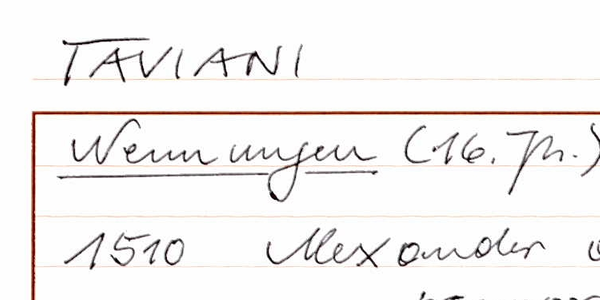 TAVIANI
Nennungen (16. Jh.)
1510 Alexander